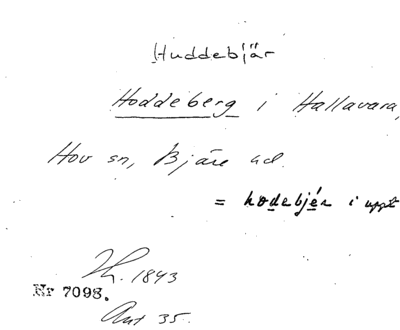 Huddebjär
Hoddeberg i Hallavara,
Hov sn, Bjäre hd.
= hodebjér i uppt
1843
Nr 7098.
Ant 35.